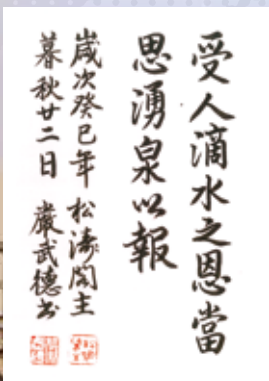 受人滴水之恩當
思湧泉以報
歲次癸巳年 松濤閣主
暮秋廿二日 嚴武德書